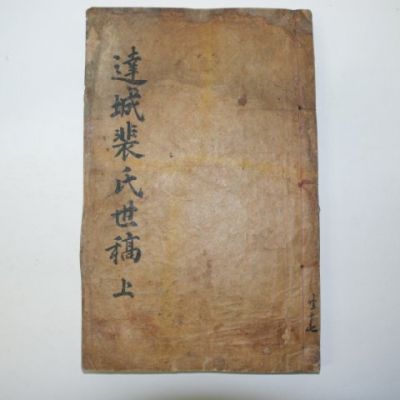 達城裴氏世稿 上